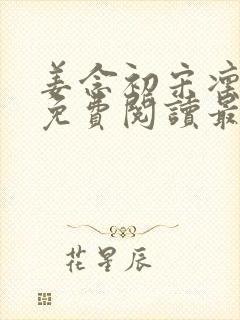 姜念初宋凛
免費閱讀最
花星辰